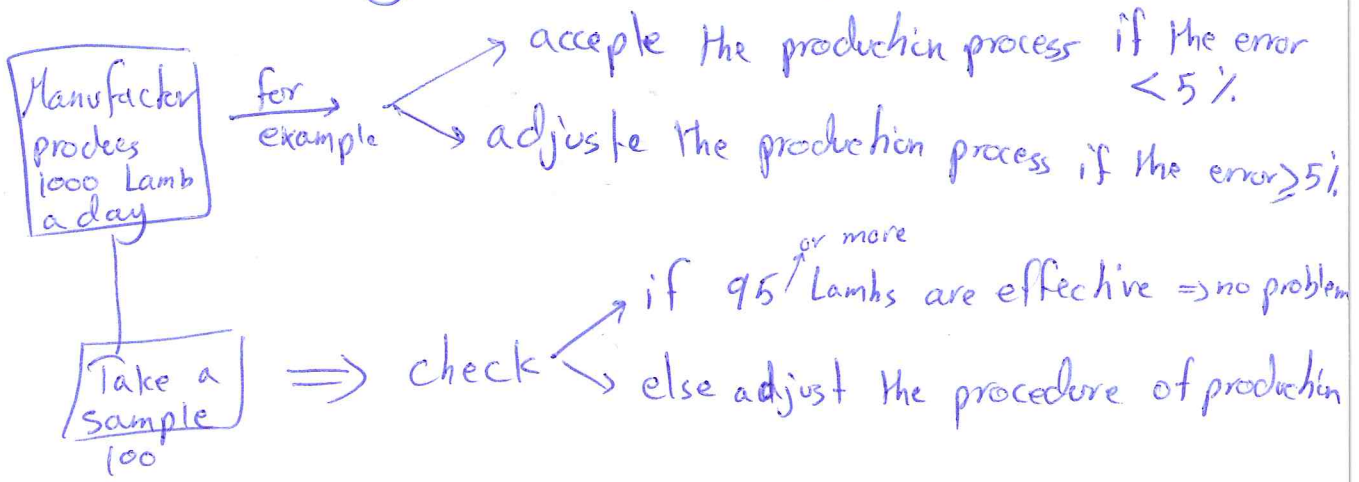 Manufacter
prodces
1000 Lamb
a day
for
example
acceple the production process if the error
< 5 %
adjuste the production process if the error ≥ 5%
Take a
sample
100
check
or more
if 95 Lambs are effective => no problem
else adjust the procedure of production